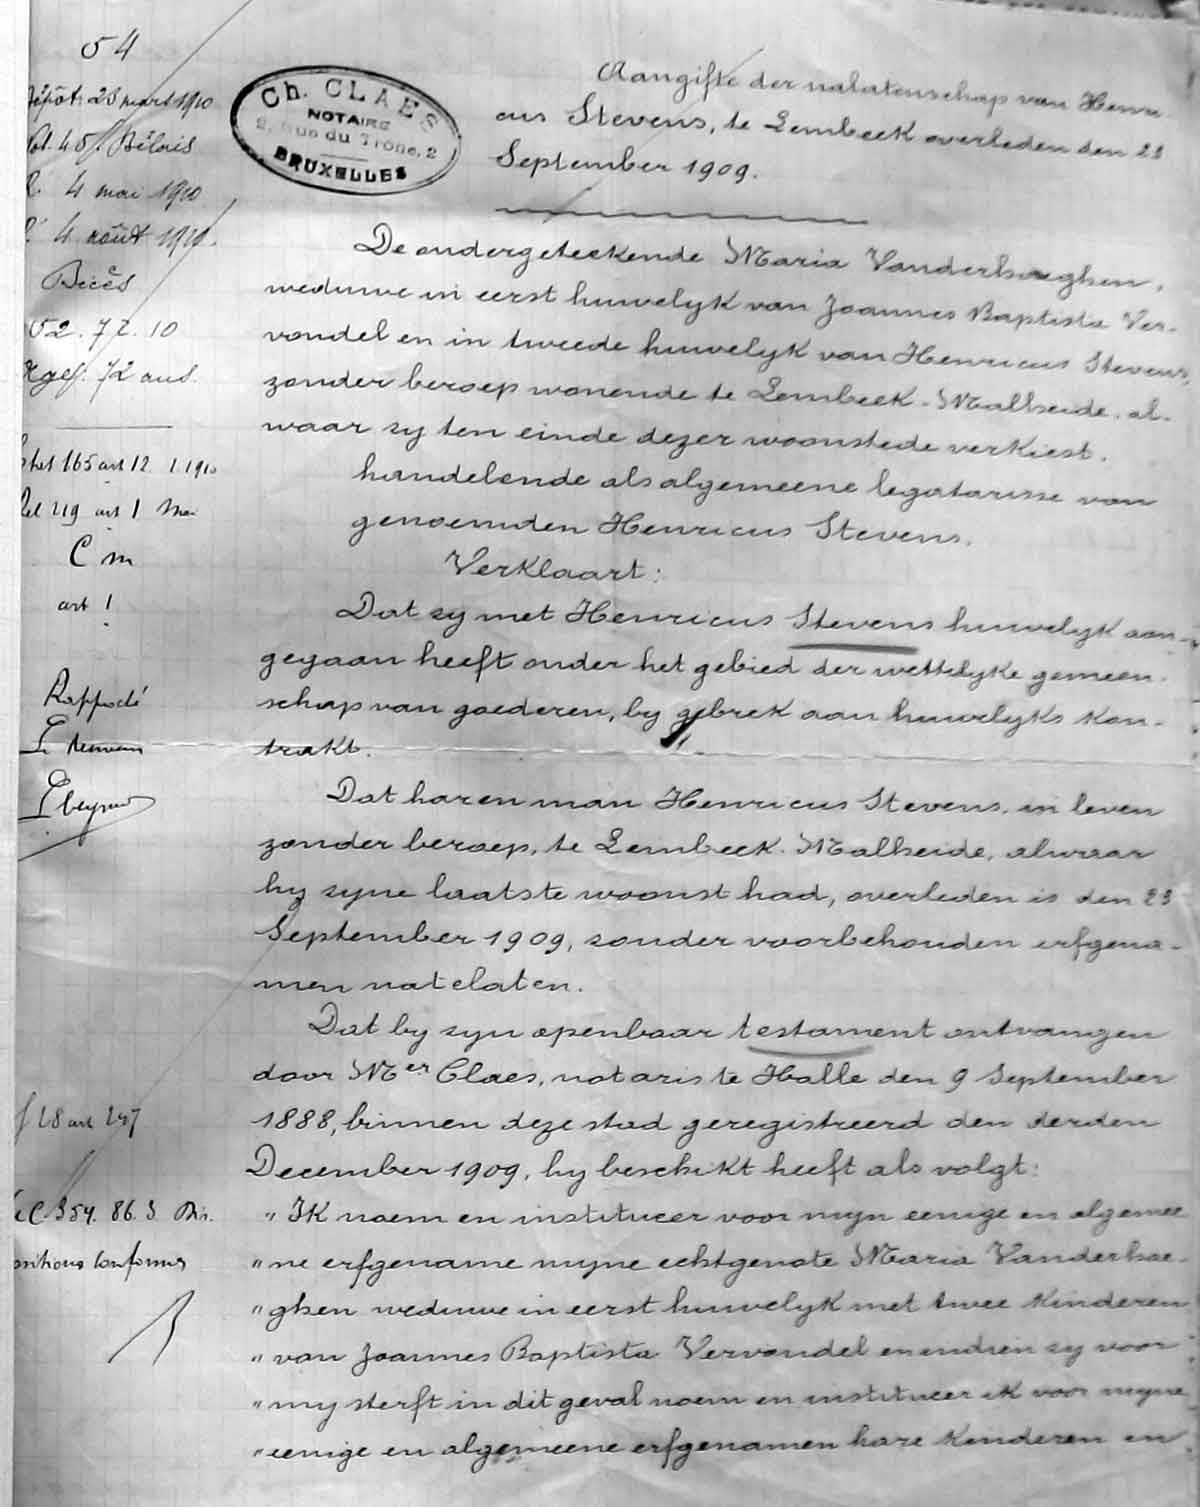 54
Dépôt 23 mars 1910
Vol. 45. Délais
4 mai 1910
4 août 1910.
Décès
52. 72. 10
72 ans.
165 art 12 1.1910
219 art 1
C m
art 1
Ch. CLAES
NOTAIRE
2, Rue du Trône, 2
BRUXELLES
Aangifte der nalatenschap van Henri
cus Stevens, te Lembeek overleden den 23
September 1909.
De ondergeteekende Maria Vanderhaeghen,
weduwe in eerst huwelyk van Joannes Baptista Ver-
vondel en in tweede huwelyk van Henricus Stevens,
zonder beroep wonende te Lembeek-Malheide, al-
waar zy ten einde dezer woonstede verkiest.
handelende als algemeene legatarisse van
genoemden Henricus Stevens.
Verklaart:
Dat zy met Henricus Stevens huwelyk aan-
gegaan heeft onder het gebied der wettelyke gemeen-
schap van goederen, by gebrek aan huwelyks kon-
trakt.
Dat haren man Henricus Stevens, in leven
zonder beroep, te Lembeek-Malheide, alwaar
hy zyne laatste woonst had, overleden is den 23
September 1909, zonder voorbehouden erfgena-
men natelaten.
Dat by zyn openbaar testament ontvangen
door Mer Claes, notaris te Halle den 9 September
1888, binnen deze stad geregistreerd den derden
December 1909, hy beschikt heeft als volgt:
28 art 247
354. 86. 3.
conformes
„ Ik noem en institueer voor myn eenige en algemee
„ ne erfgename myne echtgenote Maria Vanderhae-
„ ghen weduwe in eerst huwelyk met twee kinderen
„ van Joannes Baptista Vervondel en indien zy voor
„ my sterft in dit geval noem en institueer ik voor myne
„ eenige en algemeene erfgenamen hare kinderen en